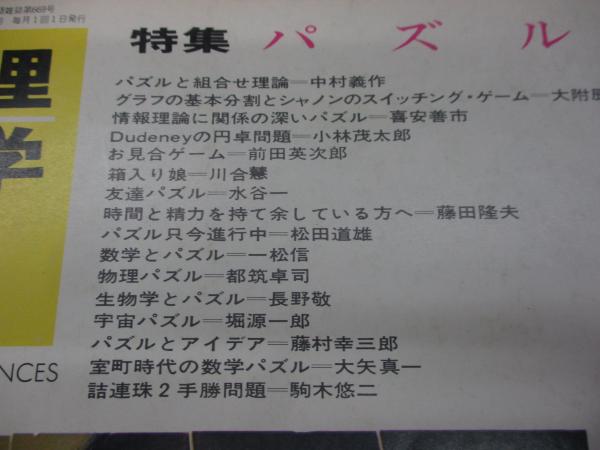 認雑誌第669号
号 毎月1回1日発行
特集 パズル
理
学
パズルと組合せ理論＝中村義作
グラフの基本分割とシャノンのスイッチング・ゲーム＝大附辰
情報理論に関係の深いパズル＝喜安善市
Dudeneyの円卓問題＝小林茂太郎
お見合ゲーム＝前田英次郎
箱入り娘＝川合慧
友達パズル＝水谷一
時間と精力を持て余している方へ＝藤田隆夫
パズル只今進行中＝松田道雄
数学とパズル＝一松信
物理パズル＝都筑卓司
生物学とパズル＝長野敬
宇宙パズル＝堀源一郎
パズルとアイデア＝藤村幸三郎
室町時代の数学パズル＝大矢真一
詰連珠2手勝問題＝駒木悠二
NCES